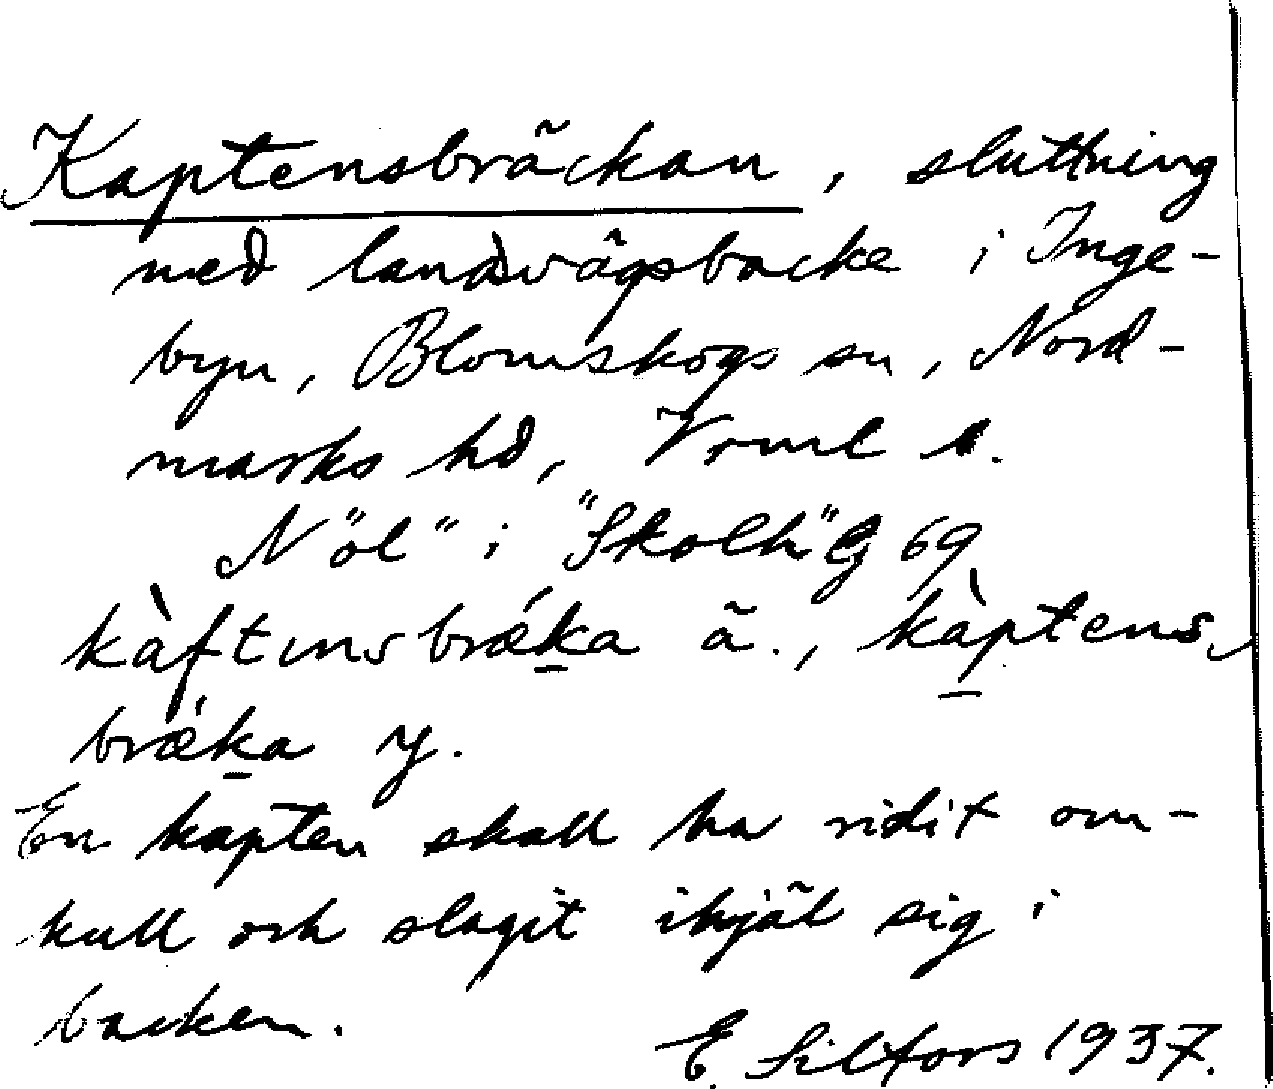 Kaptensbräckan, sluttning
med landsvägsbacke i Inge-
byn, Blomskogs sn, Nord-
marks hd, Vrml l.
N "öl" i "Skolh" G 69
kàftınsbrǽka ä., kàptens-
brǽka y.
En kapten skall ha ridit om-
kull och slagit ihjäl sig i
backen.
E. Silfors 1937.